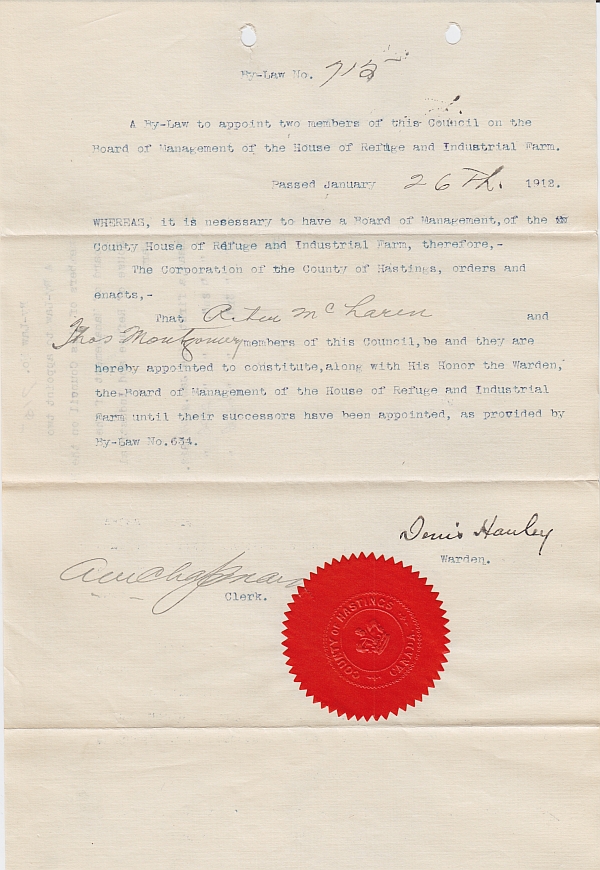 By-Law No. 712
A By-Law to appoint two members of this Council on the
Board of Management of the House of Refuge and Industrial Farm.
Passed January 26Th. 1912.
WHEREAS, it is nesessary to have a Board of Management, of the
County House of Refuge and Industrial Farm, therefore,-
The Corporation of the County of Hastings, orders and
enacts,-
That McLaren and
Thos Montgomery members of this Council, be and they are
hereby appointed to constitute, along with His Honor the Warden,
the Board of Management of the House of Refuge and Industrial
Farm until their successors have been appointed, as provided by
By-Law No. 634.
Denis Hanley
Warden.
Clerk.
COUNTY OF HASTINGS
CANADA